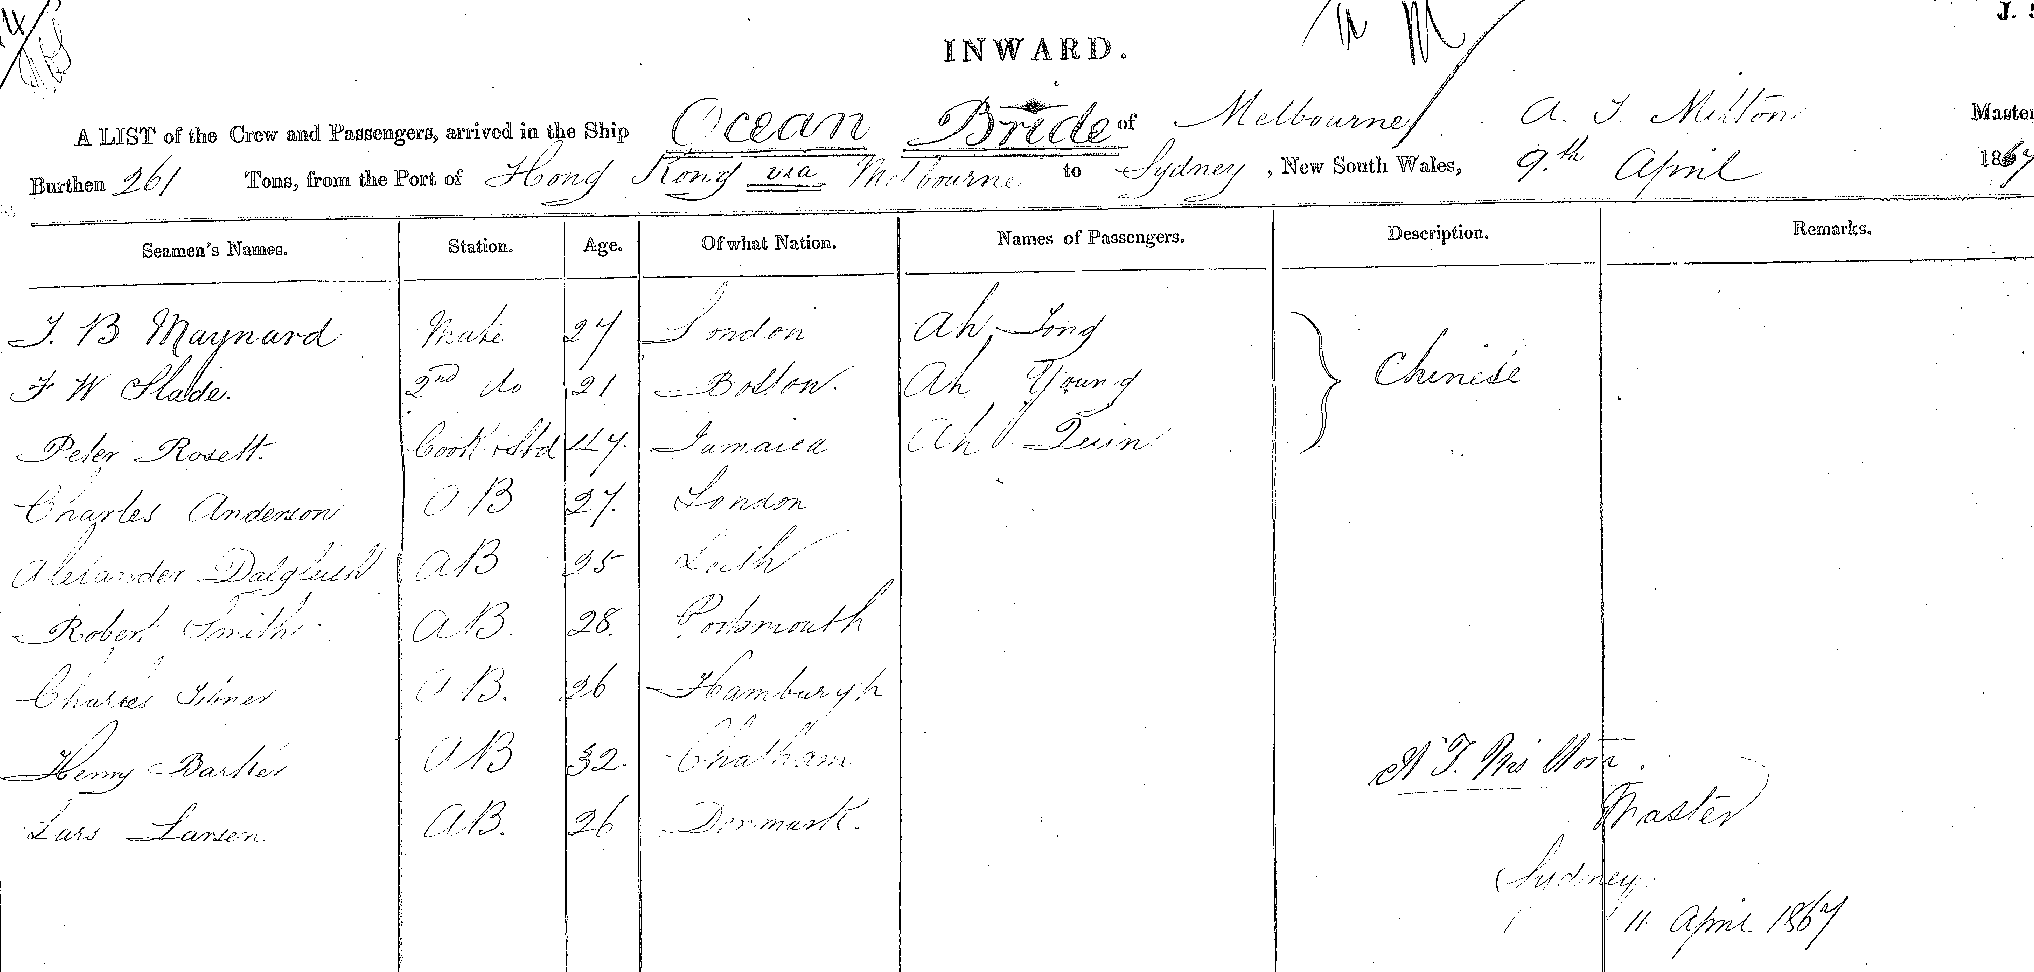 INWARD.
A LIST of the Crew and Passengers, arrived in the Ship Ocean Bride of Melbourne A. T. Milton Master
Burthen 261 Tons, from the Port of Hong Kong via Melbourne to Sydney, New South Wales, 9.th April 1867
Seamen's Names. Station. Age. Of what Nation. Names of Passengers. Description. Remarks.
J. B Maynard Mate 27 London Ah Tong
F W Slade. 2nd do 21 Boston. Ah Young Chinese
Peter Rosett. Cook & Std 47. Jamaica Ah Quin
Charles Anderson AB 27. London
Alexander Dalgleish AB 25 Leith
Robert Smith AB. 28. Portsmouth
Charles AB. 26 Hamburgh
Henry Barker AB 32. Chatham
Lars Larsen. AB. 26 Denmark.
A T. Milton.
Master
Sydney
11 April 1867